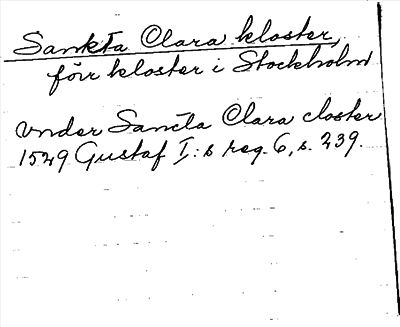 Sankta Clara kloster,
förr kloster i Stockholm
vnder Sancta Clara closter
1529 Gustaf I:s reg. 6, s. 239.